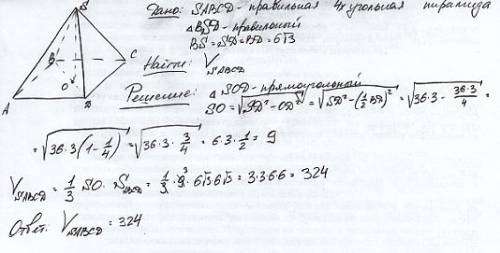 S
B
C
O
A
D
Дано: SABCD - правильная 4хугольная пирамида
△BSD - правильный
BS = SD = BD = 6√3
Найти: V_SABCD
Решение: △SOD - прямоугольный
SO = √(SD² - OD²) = √(SD² - (1/2 BD)²) = √(36·3 - 36·3/4) =
= √(36·3(1 - 1/4)) = √(36·3·3/4) = 6·3·1/2 = 9
V_SABCD = 1/3 SO · S_ABCD = 1/3 · 9 · 6√3 6√3 = 3·3·6·6 = 324
Ответ: V_SABCD = 324